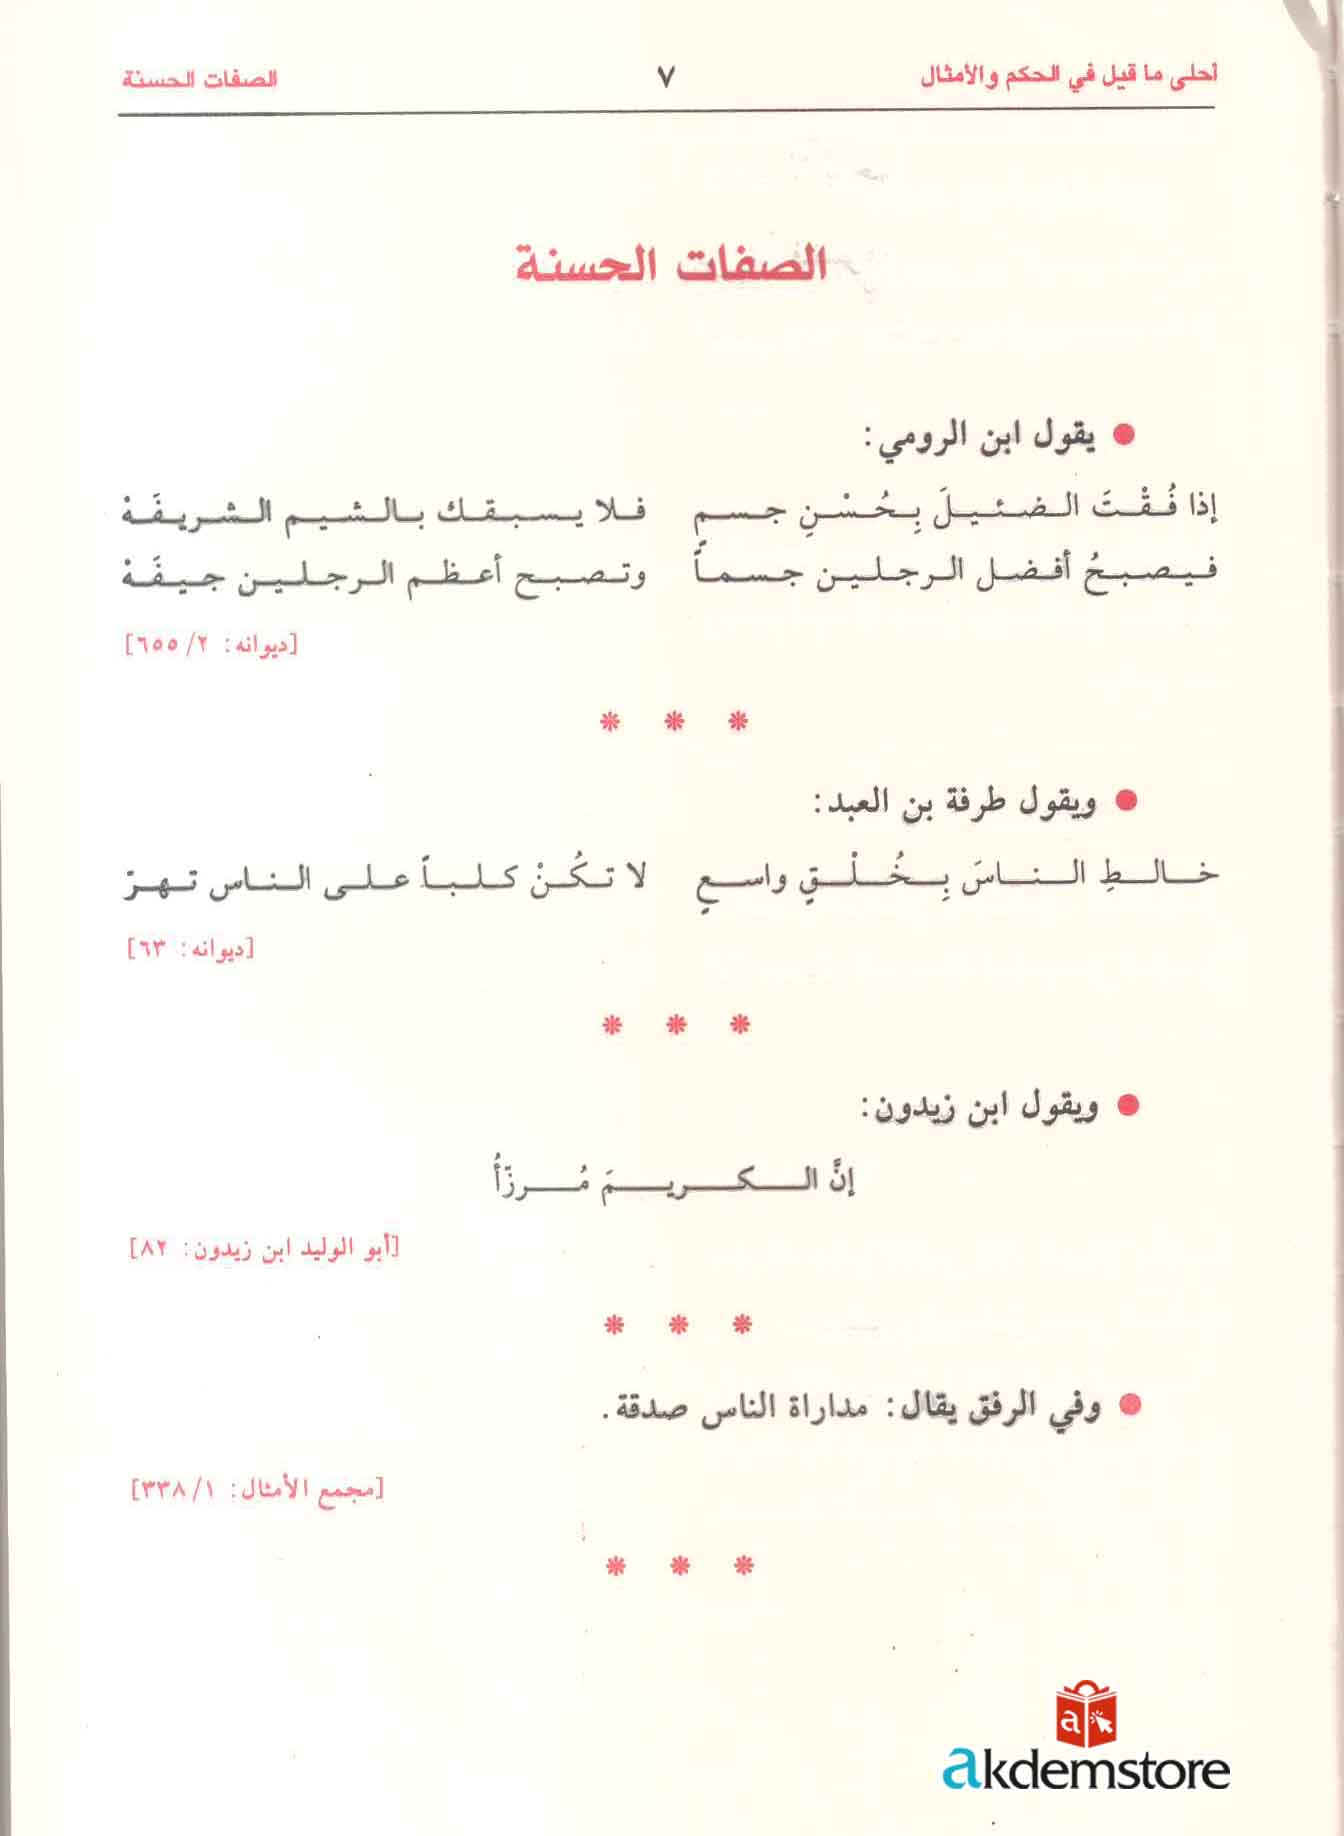 أحلى ما قيل في الحكم والأمثال ٧ الصفات الحسنة
الصفات الحسنة
● يقول ابن الرومي:
إذا فُقْتَ الضئيلَ بِحُسْنِ جسمٍ فلا يسبقك بالشيم الشريفَهْ
فيصبحُ أفضل الرجلين جسماً وتصبح أعظم الرجلين جيفَهْ
[ديوانه: ٢/ ٦٥٥]
* * *
● ويقول طرفة بن العبد:
خالطِ الناسَ بِخُلْقٍ واسعٍ لا تكُنْ كلباً على الناس تهرّ
[ديوانه: ٦٣]
* * *
● ويقول ابن زيدون:
إنَّ الكريمَ مُرزّأُ
[أبو الوليد ابن زيدون: ٨٢]
* * *
● وفي الرفق يقال: مداراة الناس صدقة.
[مجمع الأمثال: ١/ ٣٣٨]
* * *
a
akdemstore